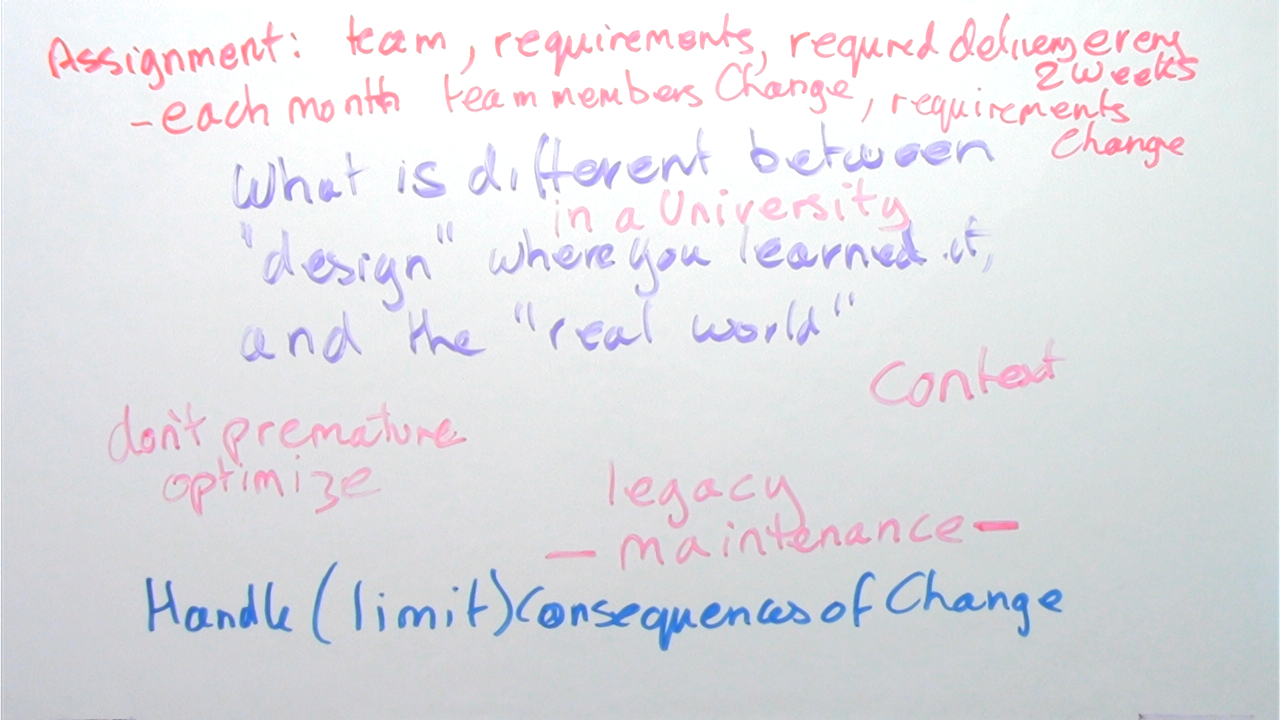 Assignment: team, requirements, required delivery every
2 weeks
- each month team members Change, requirements
Change
What is different between
in a University
"design" where you learned it,
and the "real world"
Context
don't premature
optimize
legacy
- maintenance -
Handle (limit) Consequences of Change